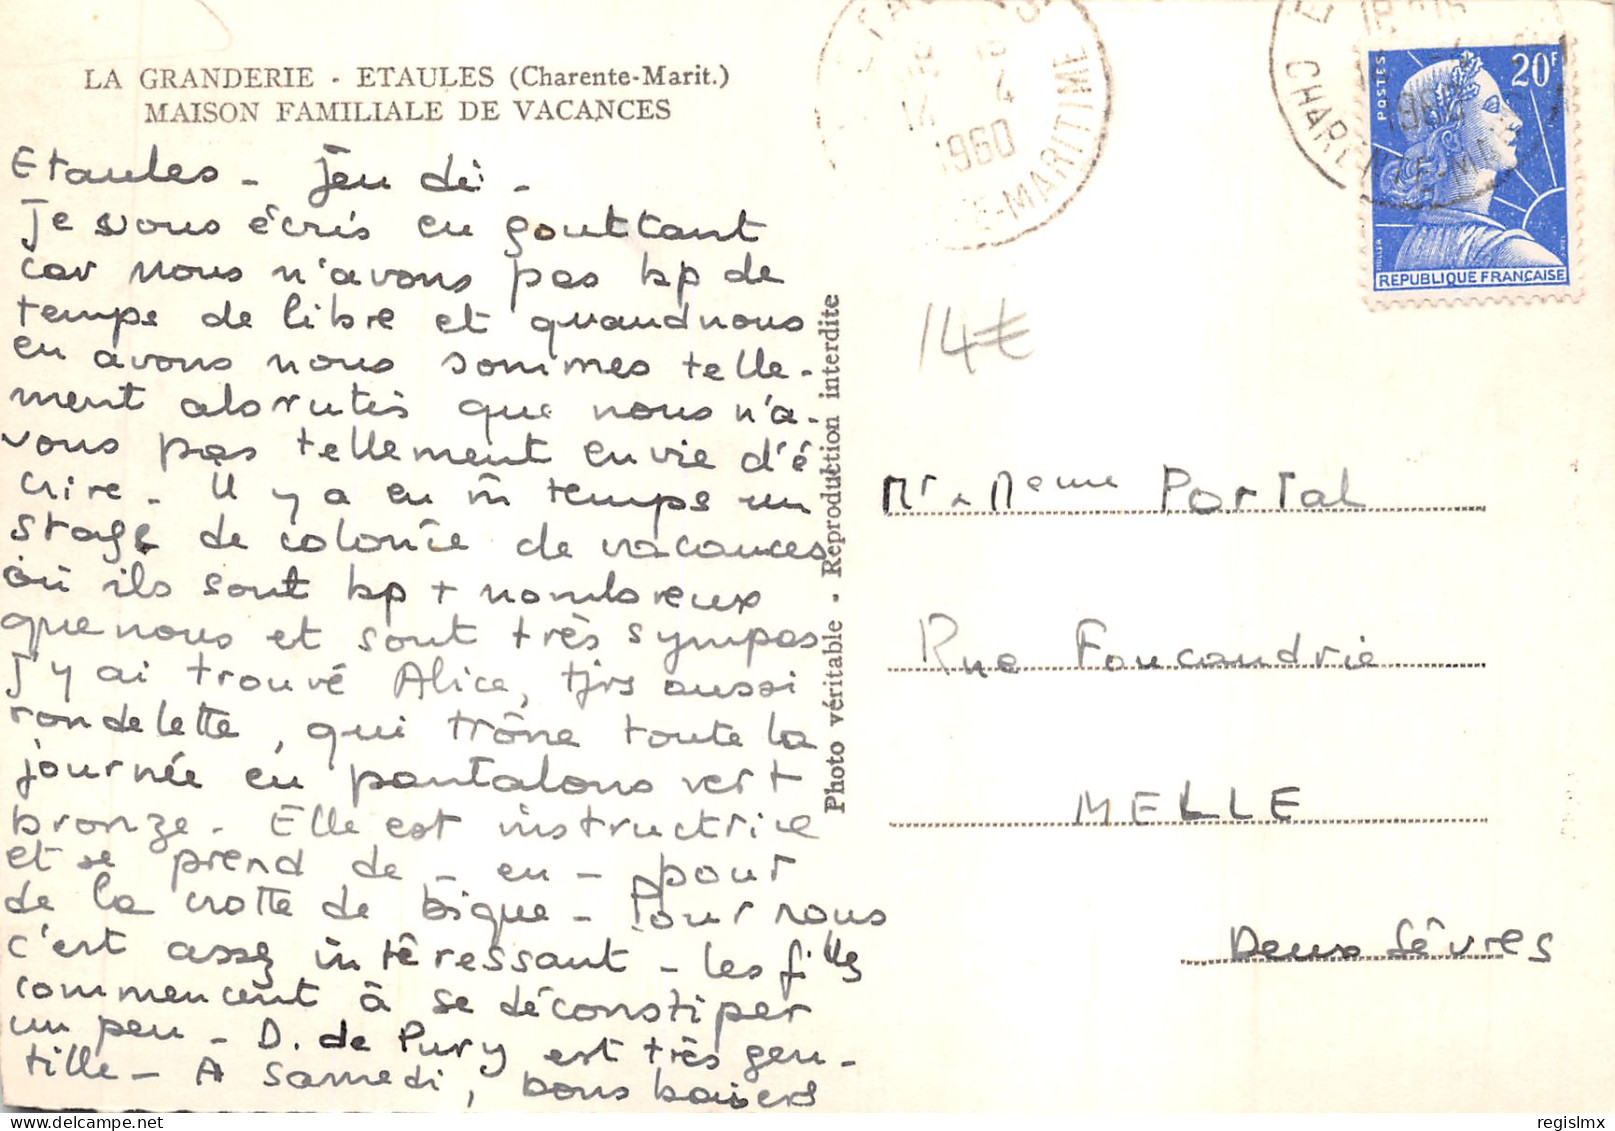 LA GRANDERIE - ETAULES (Charente-Marit.)
MAISON FAMILIALE DE VACANCES
Etaules - Jeudi -
Je vous écris en gouttant
car nous n'avons pas bp de
temps de libre et quand nous
en avons nous sommes telle-
ment abrutis que nous n'a-
vons pas tellement envie d'é
crire - Il y a en m̄ temps un
stage de colonie de vacances
où ils sont bp + nombreux
que nous et sont très sympas
J'y ai trouvé Alice, tjrs aussi
rondelette, qui trône toute la
journée en pantalons vert
bronze - Elle est instructrice
et se prend de - en - pour
de la crotte de bique - Pour nous
c'est assez intéressant - les filles
commencent à se déconstiper
un peu - D. de Pury est très gen-
tille - A samedi, bons baisers
Photo véritable - Reproduction interdite
14 4
1960
CHARENTE-MARITIME
1960
CHARENTE-MARITIME
POSTES
20F
MULLER
REPUBLIQUE FRANÇAISE
14€
Mr & Meme Portal
Rue Foucaudrie
MELLE
Deux Sèvres
regislmx